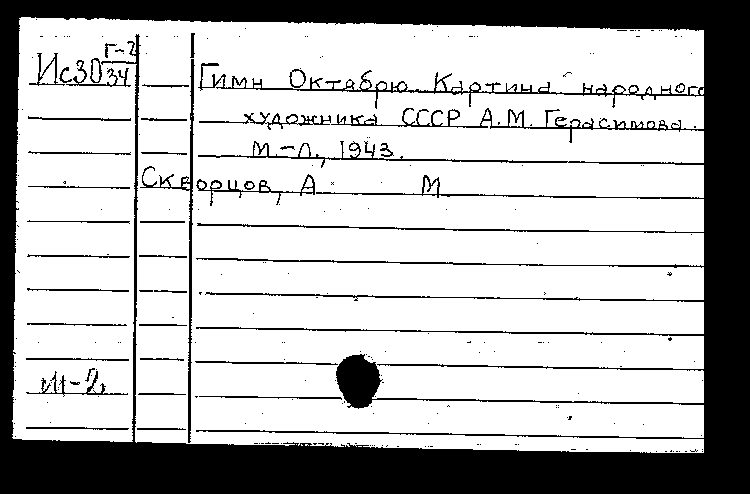 Ис30 Г-2/34
Гимн Октябрю. Картина народного
художника СССР А.М. Герасимова.
М.-Л., 1943.
Скворцов, А М
М-2